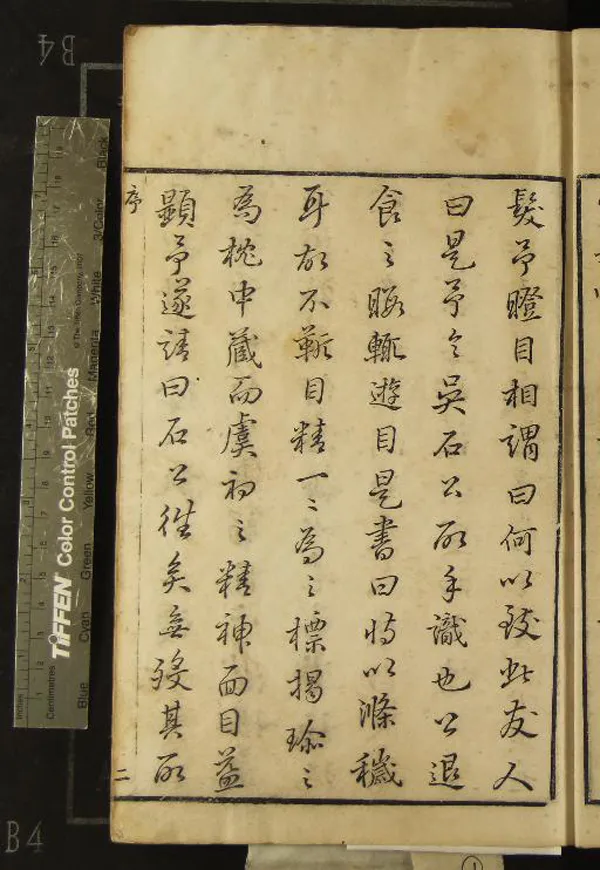 髮予瞪目相謂曰何以致此友人
曰是予令吳石公所手識也公退
食之暇輒遊目是書曰時以滌穢
耳故不斬目精一〻為之標揭珍之
為枕中藏而虞初之精神面目益
顯予遂請曰石公往矣無殁其所
序
二
B4
B4
TIFFEN Color Control Patches
© The Tiffen Company, 2007
Blue
Cyan
Green
Yellow
Red
Magenta
White
3/Color
Black
Inches
Centimetres
1